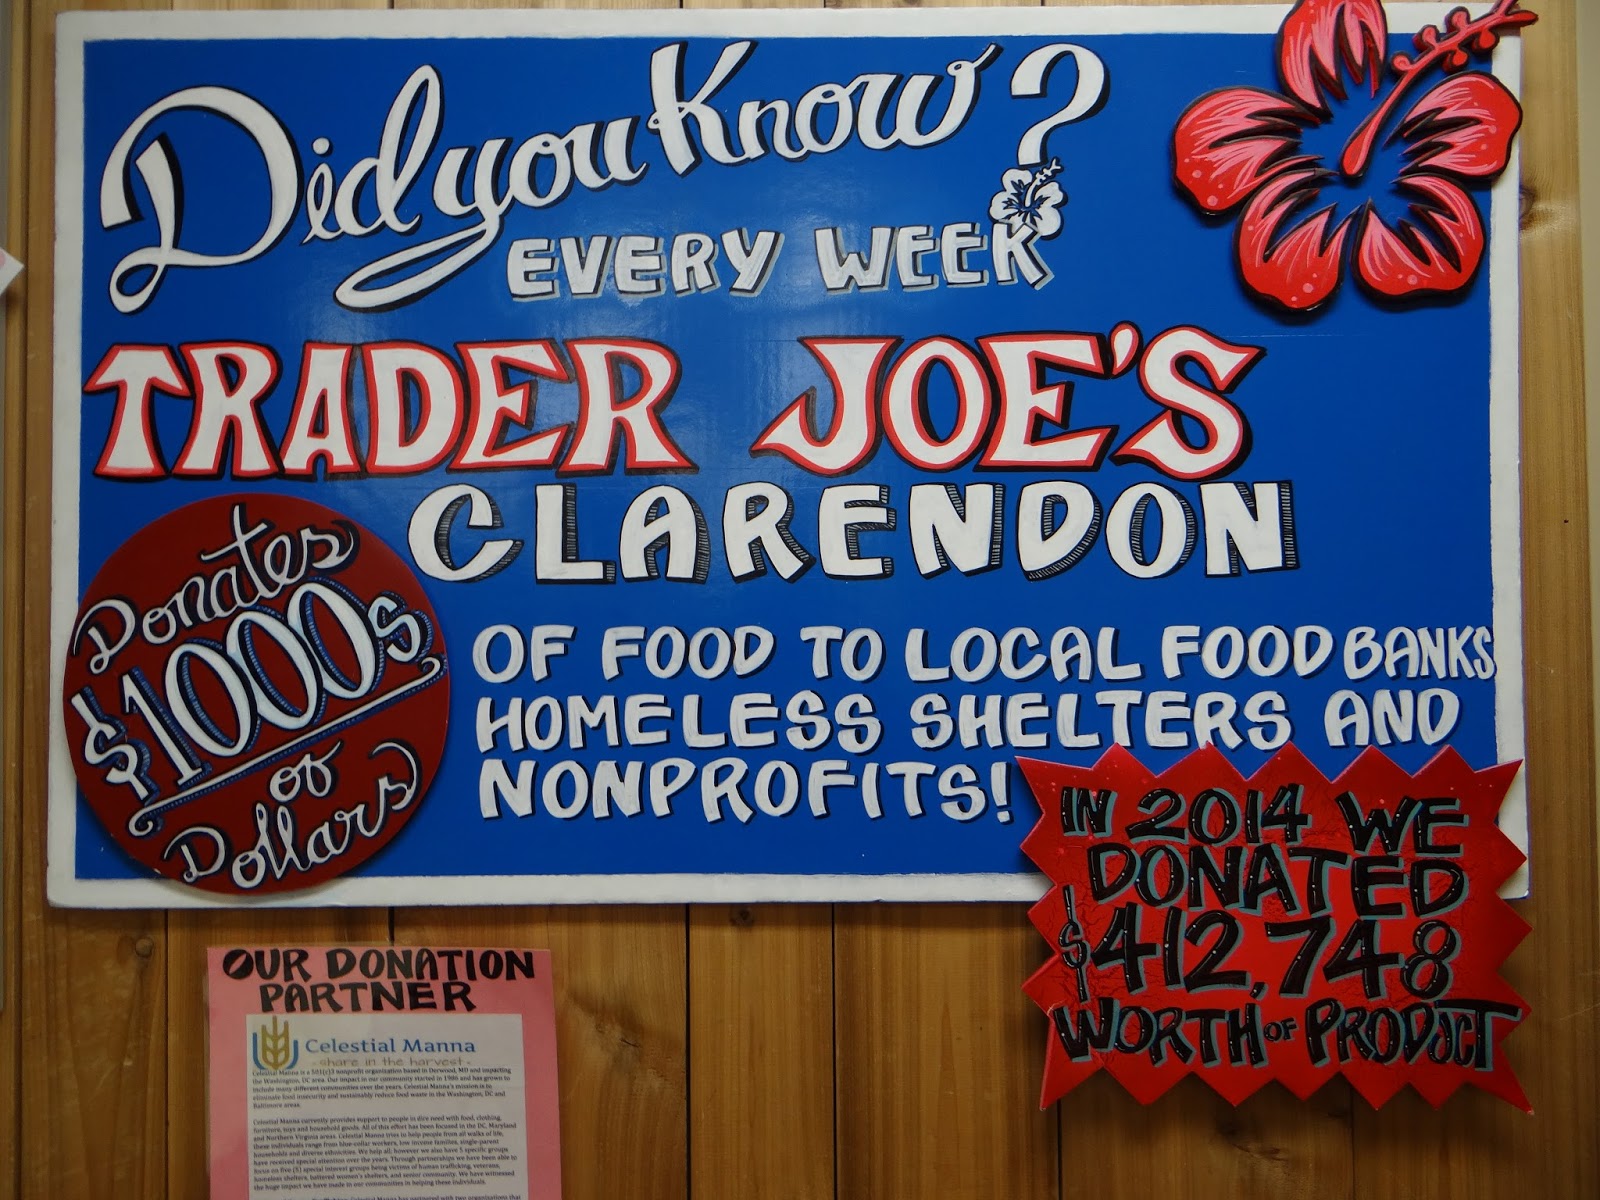 Did you Know?
EVERY WEEK
TRADER JOE'S
CLARENDON
Donates
$1000s
of
Dollars
OF FOOD TO LOCAL FOOD BANKS
HOMELESS SHELTERS AND
NONPROFITS!
IN 2014 WE
DONATED
$412,748
WORTH OF PRODUCT
OUR DONATION
PARTNER
Celestial Manna
- share in the harvest -
Celestial Manna is a 501(c)3 nonprofit organization based in Derwood, MD and impacting
the Washington, DC area. Our impact in our community started in 1986 and has grown to
include many different communities over the years. Celestial Manna's mission is to
eliminate food insecurity and sustainably reduce food waste in the Washington, DC and
Baltimore areas.
Celestial Manna currently provides support to people in dire need with food, clothing,
furniture, toys and household goods. All of this effort has been focused in the DC, Maryland
and Northern Virginia areas. Celestial Manna tries to help people from all walks of life,
these individuals range from blue-collar workers, low income families, single-parent
households and diverse ethnicities. We help all; however we also have 5 specific groups
have received special attention over the years. Through partnerships we have been able to
focus on five (5) special interest groups being victims of human trafficking, veterans,
homeless shelters, battered women's shelters, and senior community. We have witnessed
the huge impact we have made in our communities in helping these individuals.
Celestial Manna has partnered with two organizations that